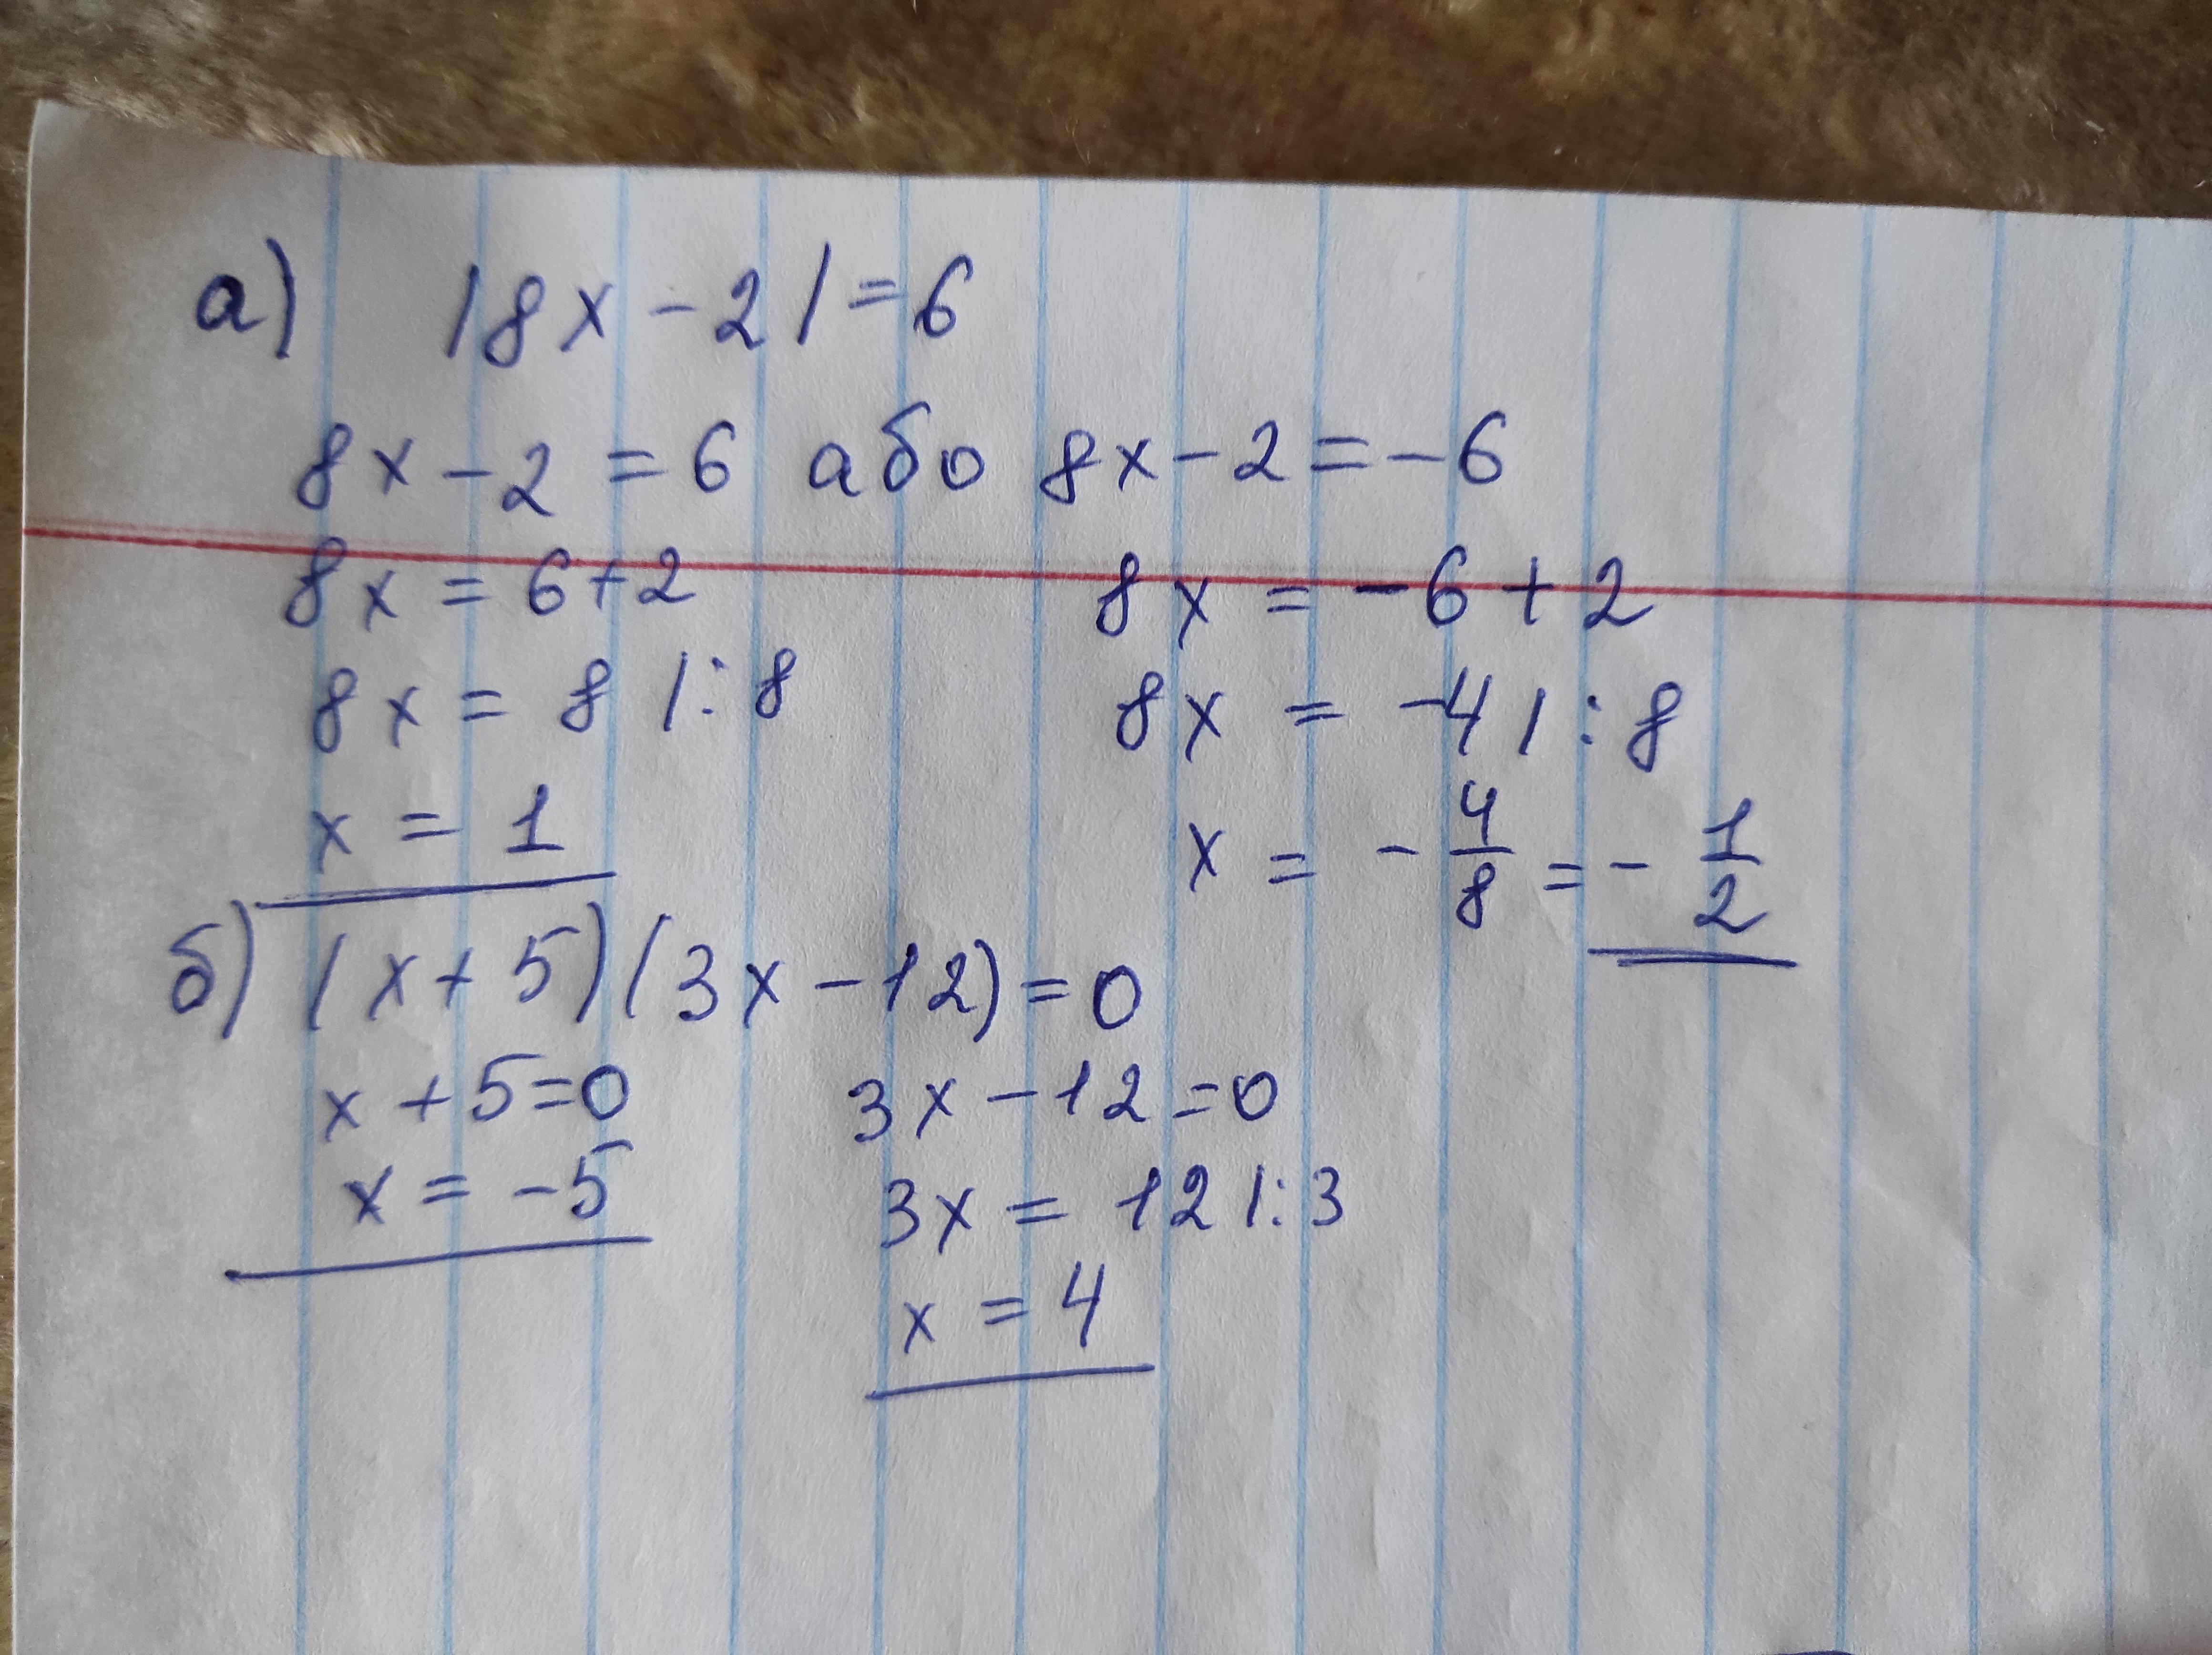 а) |8x - 2| = 6
8x - 2 = 6 або 8x - 2 = -6
8x = 6 + 2 8x = -6 + 2
8x = 8 |: 8 8x = -4 |: 8
x = 1 x = - 4/8 = - 1/2
б) (x + 5)(3x - 12) = 0
x + 5 = 0 3x - 12 = 0
x = -5 3x = 12 |: 3
x = 4